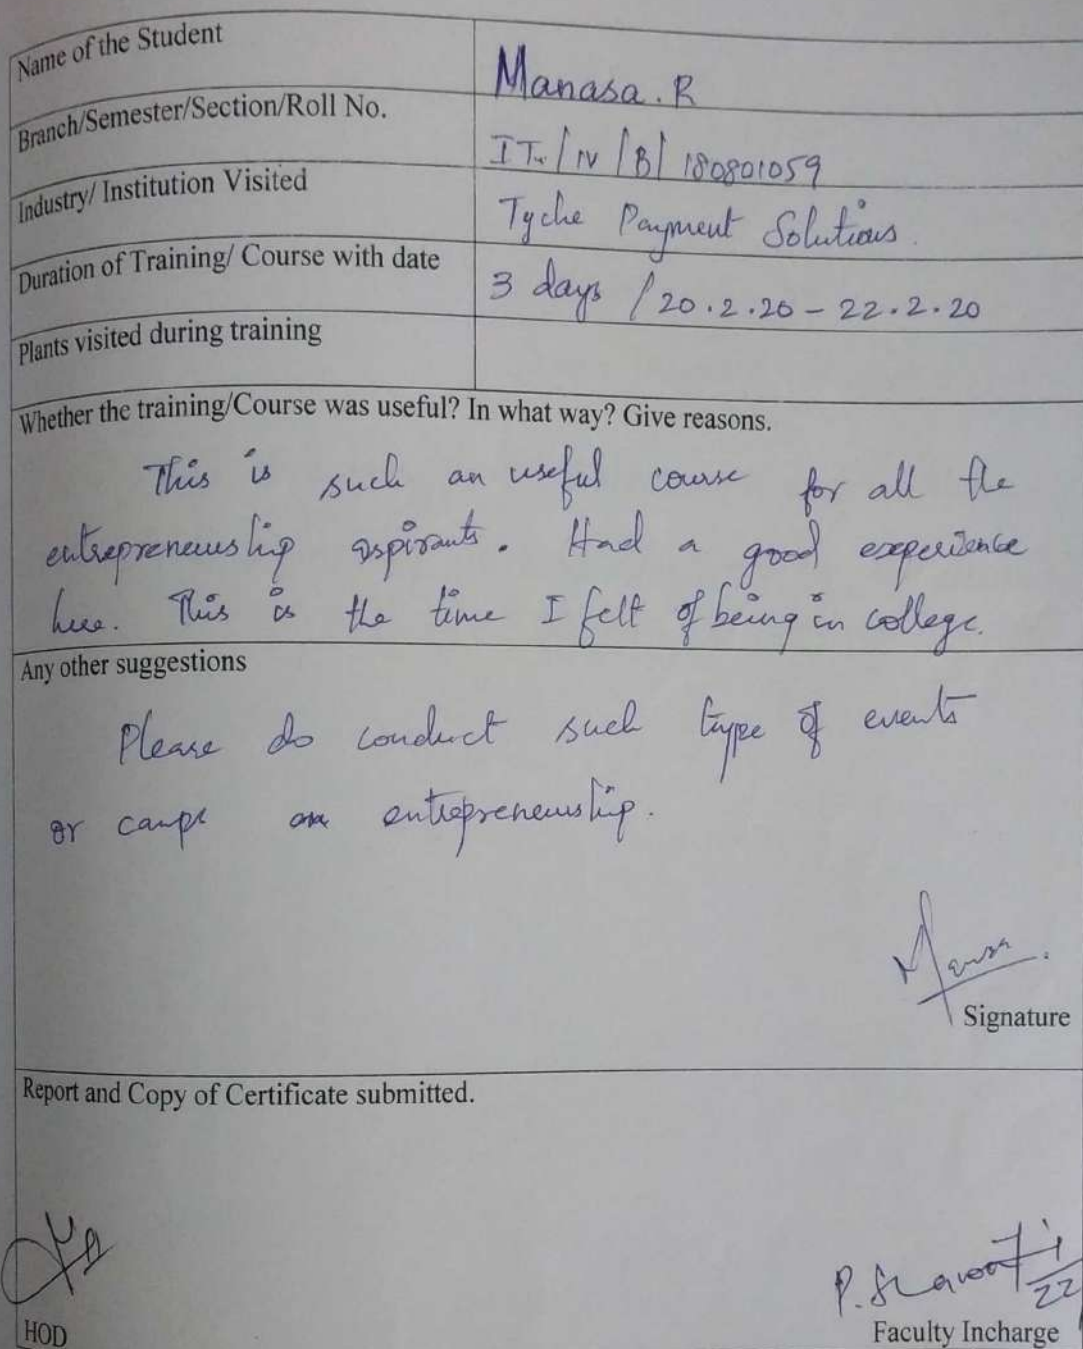 Name of the Student
Manasa. R
Branch/Semester/Section/Roll No.
IT / IV / B / 180801059
Industry/ Institution Visited
Tyche Payment Solutions.
Duration of Training/ Course with date
3 days / 20.2.20 - 22.2.20
Plants visited during training
Whether the training/Course was useful? In what way? Give reasons.
This is such an useful course for all the
entrepreneurship aspirants. Had a good experience
here. This is the time I felt of being in college.
Any other suggestions
Please do conduct such type of events
or camps on entrepreneurship.
Signature
Report and Copy of Certificate submitted.
P.
22
HOD
Faculty Incharge